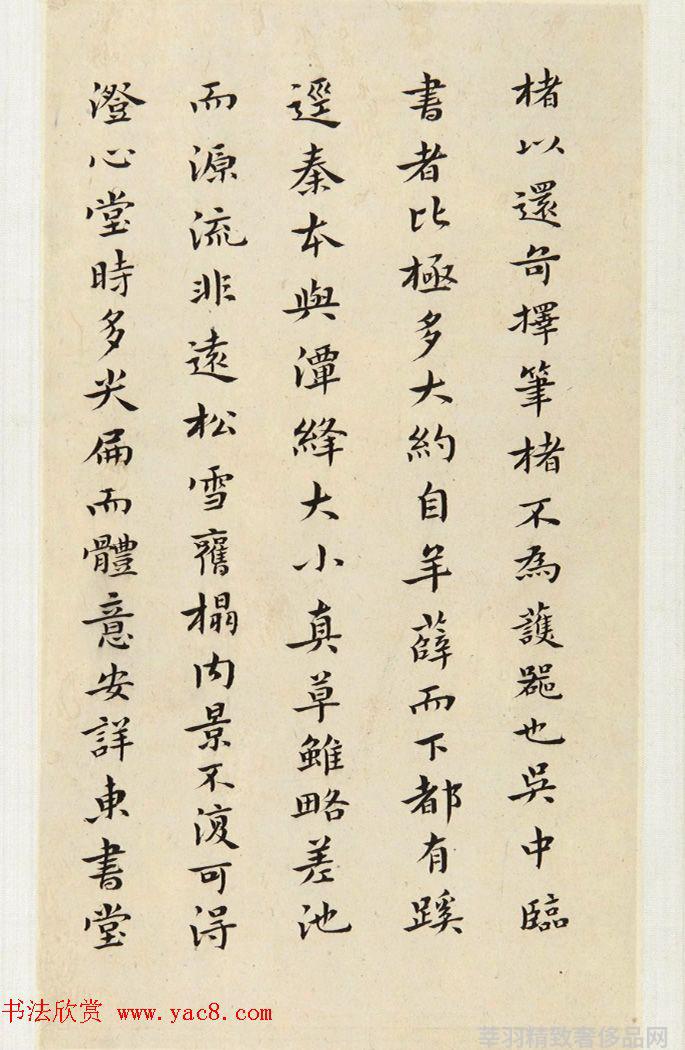 楮以還擇筆楮不為護器也吳中臨
書者比極多大約自羊薛而下都有蹊
逕秦本與潭絳大小真草雖略差池
而源流非遠松雪舊榻内景不復可得
澄心堂時多尖扁而體意安詳東書堂
书法欣赏 www.yac8.com
莘羽精致奢侈品网